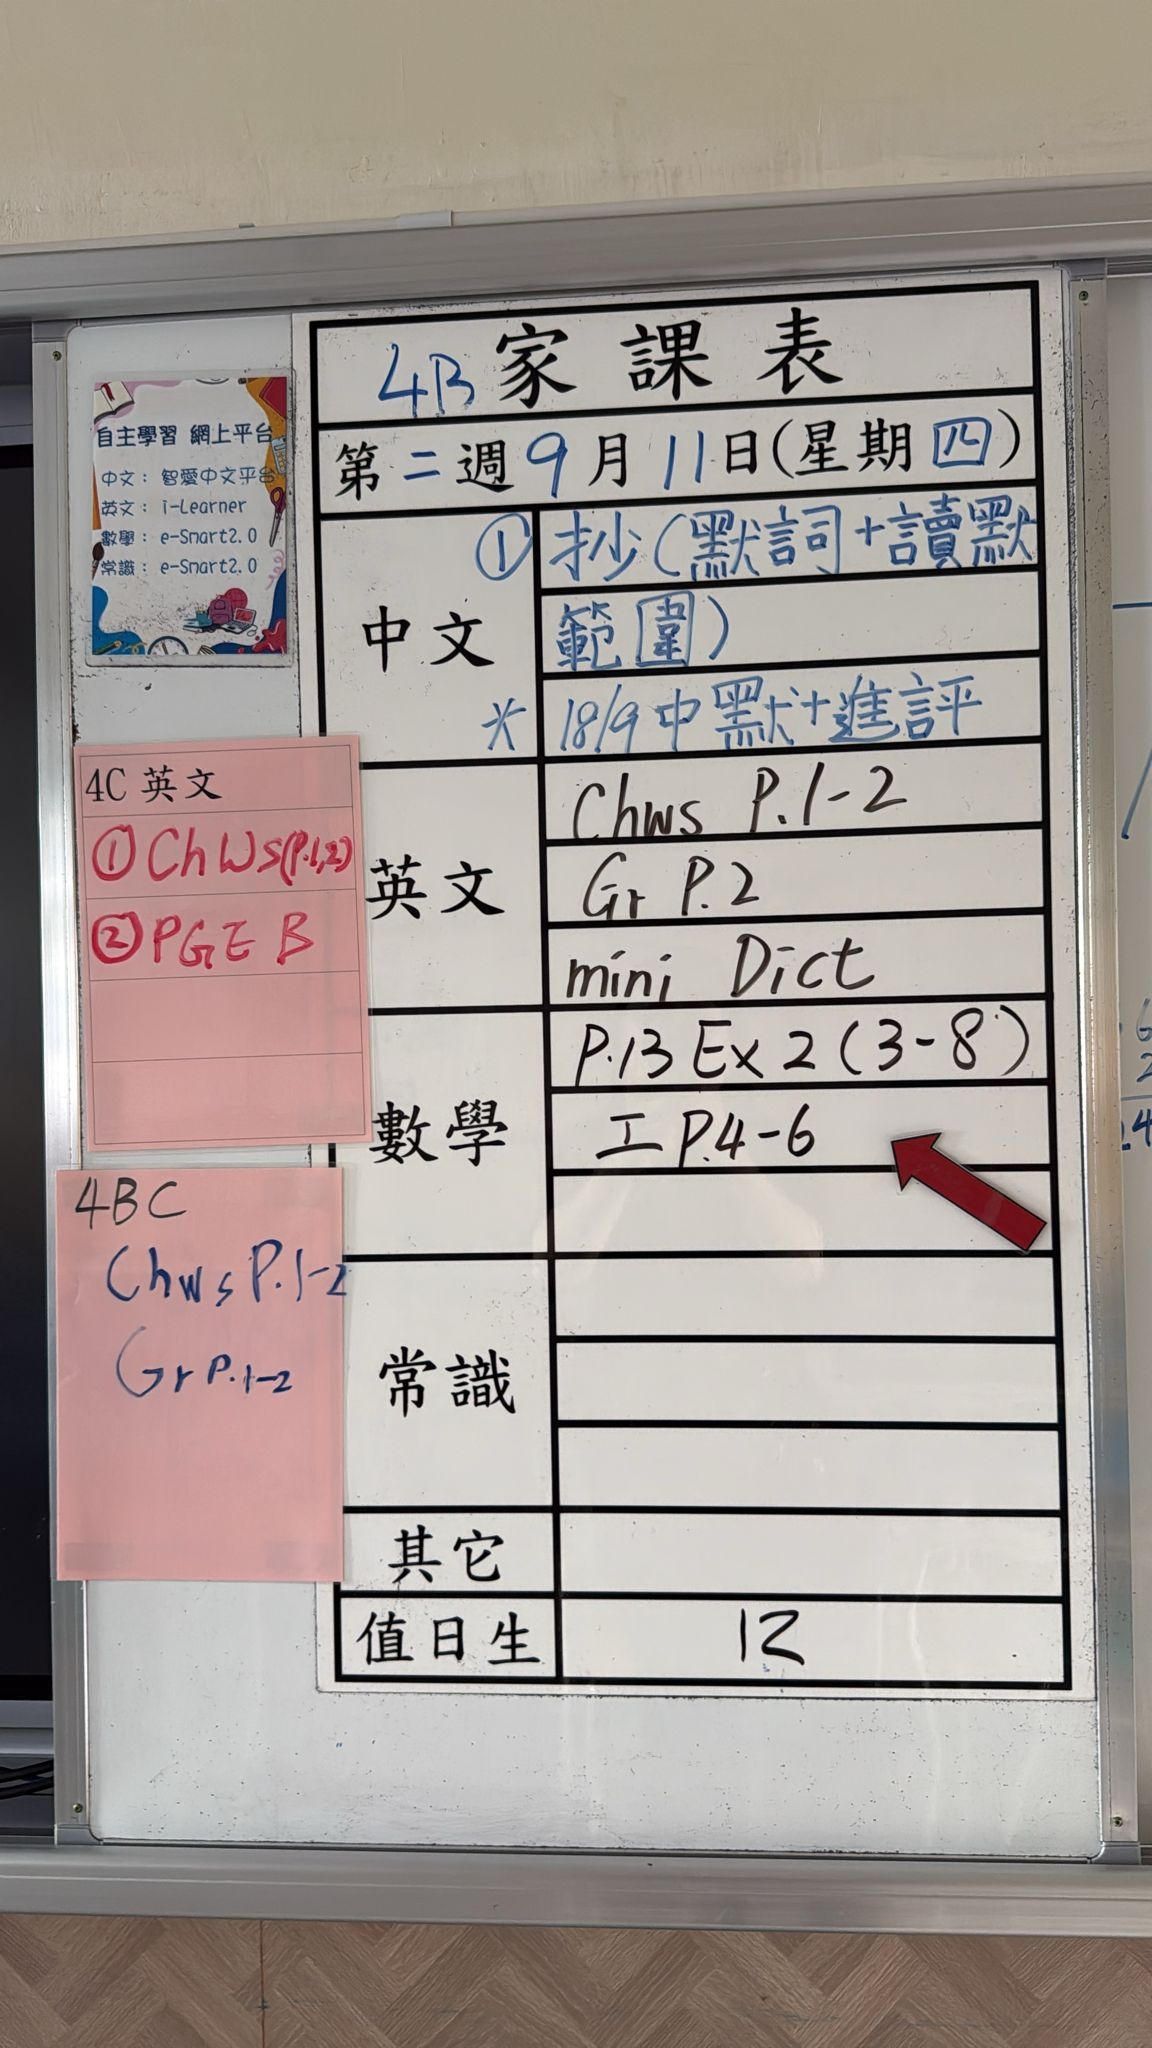 4B 家課表
第二週9月11日(星期四)
自主學習 網上平台
中文： 智愛中文平台
英文： i-Learner
數學： e-Smart2.0
常識： e-Smart2.0
中文
① 抄(默詞+讀默
範圍)
* 18/9中默+進評
英文
Chws P.1-2
Gr P.2
mini Dict
數學
P.13 Ex 2 (3-8)
工 P.4-6
常識
其它
值日生
12
4C 英文
① ChWs(P.1,2)
② PGE B
4BC
Chws P.1-2
Gr P.1-2